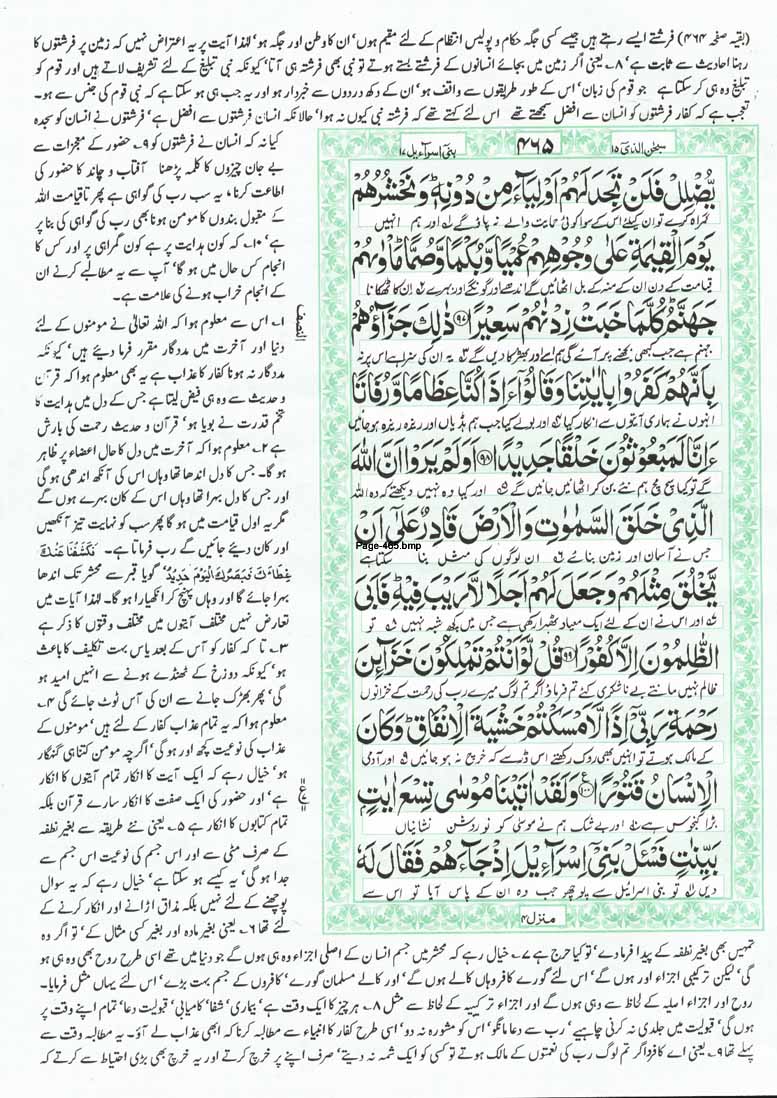 (بقیہ صفحہ ۴۶۴) فرشتے ایسے رہتے ہیں جیسے کسی جگہ حکام و پولیس انتظام کے لئے مقیم ہوں' ان کا وطن اور جگہ ہو' لہٰذا آیت پر یہ اعتراض نہیں کہ زمین پر فرشتوں کا
رہنا احادیث سے ثابت ہے' ۸۔ یعنی اگر زمین میں بجائے انسانوں کے فرشتے بستے ہوتے تو نبی بھی فرشتہ ہی آتا' کیونکہ نبی تبلیغ کے لئے تشریف لاتے ہیں اور قوم کو
تبلیغ وہ ہی کر سکتا ہے جو قوم کی زبان' اس کے طور طریقوں سے واقف ہو' ان کے دکھ دردوں سے خبردار ہو اور یہ جب ہی ہو سکتا ہے کہ نبی قوم کی جنس سے ہو۔
تعجب ہے کہ کفار فرشتوں کو انسان سے افضل سمجھتے تھے اس لئے کہتے تھے کہ فرشتہ نبی کیوں نہ ہوا' حالانکہ انسان فرشتوں سے افضل ہے' فرشتوں نے انسان کو سجدہ
کیا نہ کہ انسان نے فرشتوں کو ۹۔ حضور کے معجزات سے
بے جان چیزوں کا کلمہ پڑھنا آفتاب و چاند کا حضور کی
اطاعت کرنا' یہ سب رب کی گواہی ہے پھر تاقیامت اللہ
کے مقبول بندوں کا مومن ہونا بھی رب کی گواہی کی بنا پر
ہے' ۱۰۔ کہ کون ہدایت پر ہے کون گمراہی پر اور کس کا
انجام کس حال میں ہو گا' آپ سے یہ مطالبے کرنے ان
کے انجام خراب ہونے کی علامت ہے۔
۱۔ اس سے معلوم ہوا کہ اللہ تعالیٰ نے مومنوں کے لئے
دنیا اور آخرت میں مددگار مقرر فرما دیئے ہیں' کیونکہ
مددگار نہ ہونا کفار کا عذاب ہے یہ بھی معلوم ہوا کہ قرآن
و حدیث سے وہ ہی فیض لیتا ہے جس کے دل میں ہدایت کا
تخم قدرت نے بویا ہو' قرآن و حدیث رحمت کی بارش
ہے ۲۔ معلوم ہوا کہ آخرت میں دل کا حال اعضاء پر ظاہر
ہو گا۔ جس کا دل اندھا تھا وہاں اس کی آنکھ اندھی ہو گی
اور جس کا دل بہرا تھا وہاں اس کے کان بہرے ہوں گے
مگر یہ اول قیامت میں ہو گا پھر سب کو نہایت تیز آنکھیں
اور کان دیئے جائیں گے رب فرماتا ہے۔ فَكَشَفْنَا عَنْكَ
غِطَاءَكَ فَبَصَرُكَ الْيَوْمَ حَدِيْدٌ گویا قبر سے محشر تک اندھا
بہرا جائے گا اور وہاں پہنچ کر انکھیارا ہو گا۔ لہٰذا آیات میں
تعارض نہیں مختلف آیتوں میں مختلف وقتوں کا ذکر ہے
۳۔ تا کہ کفار کو آس کے بعد یاس بہت تکلیف کا باعث
ہو' کیونکہ دوزخ کے ٹھنڈے ہونے سے انہیں امید ہو
گی' پھر بھڑک جانے سے ان کی آس ٹوٹ جائے گی ۴۔
معلوم ہوا کہ یہ تمام عذاب کفار کے لئے ہیں' مومنوں کے
عذاب کی نوعیت کچھ اور ہو گی' اگرچہ مومن کتنا ہی گنہگار
ہو' خیال رہے کہ ایک آیت کا انکار تمام آیتوں کا انکار
ہے' اور حضور کی ایک صفت کا انکار سارے قرآن بلکہ
تمام کتابوں کا انکار ہے ۵۔ یعنی نئے طریقہ سے بغیر نطفہ
کے صرف مٹی سے اور اس جسم کی نوعیت اس جسم سے
جدا ہو گی' یہ کیسے ہو سکتا ہے' خیال رہے کہ یہ سوال
پوچھنے کے لئے نہیں بلکہ مذاق اڑانے اور انکار کرنے کے
لئے تھا ۶۔ یعنی بغیر مادہ اور بغیر کسی مثال کے' تو اگر وہ
سبحٰن الذی ۱۵
۴۶۵
بنی اسراءیل ۱۷
يُّضْلِلْ فَلَنْ تَجِدَ لَهُمْ اَوْلِيَآءَ مِنْ دُوْنِهٖ ؕ وَنَحْشُرُهُمْ
گمراہ کرے تو ان کیلئے اس کے سوا کوئی حمایت والے نہ پاؤ گے اور ہم انہیں
يَوْمَ الْقِيٰمَةِ عَلٰى وُجُوْهِهِمْ عُمْيًا وَّبُكْمًا وَّصُمًّا ؕ مَاْوٰىهُمْ
قیامت کے دن ان کے منہ کے بل اٹھائیں گے اندھے اور گونگے اور بہرے ان کا ٹھکانا
جَهَنَّمُ ؕ كُلَّمَا خَبَتْ زِدْنٰهُمْ سَعِيْرًا ۹۷ ذٰلِكَ جَزَآؤُهُمْ
جہنم ہے جب کبھی بجھنے پر آئے گی ہم اسے اور بھڑکا دیں گے یہ ان کی سزا ہے اس پر نہ
بِاَنَّهُمْ كَفَرُوْا بِاٰيٰتِنَا وَقَالُوْٓا ءَاِذَا كُنَّا عِظَامًا وَّرُفَاتًا
انہوں نے ہماری آیتوں سے انکار کیا اور بولے کیا جب ہم ہڈیاں اور ریزہ ریزہ ہو جائیں
ءَاِنَّا لَمَبْعُوْثُوْنَ خَلْقًا جَدِيْدًا ۹۸ اَوَلَمْ يَرَوْا اَنَّ اللّٰهَ
گے تو کیا سچ مچ ہم نئے بن کر اٹھائیں جائیں گے اور کیا وہ نہیں دیکھتے کہ وہ اللہ
الَّذِيْ خَلَقَ السَّمٰوٰتِ وَالْاَرْضَ قَادِرٌ عَلٰٓى اَنْ
جس نے آسمان اور زمین بنائے ان لوگوں کی مثل بنا سکتا ہے
Page-465.bmp
يَّخْلُقَ مِثْلَهُمْ وَجَعَلَ لَهُمْ اَجَلًا لَّا رَيْبَ فِيْهِ ؕ فَاَبَى
اور اس نے ان کے لئے ایک میعاد ٹھہرا رکھی ہے جس میں کچھ شبہ نہیں تو
الظّٰلِمُوْنَ اِلَّا كُفُوْرًا ۹۹ قُلْ لَّوْ اَنْتُمْ تَمْلِكُوْنَ خَزَآئِنَ
ظالم نہیں مانتے بے ناشکری کئے تم فرماؤ اگر تم لوگ میرے رب کی رحمت کے خزانوں
رَحْمَةِ رَبِّيْٓ اِذًا لَّاَمْسَكْتُمْ خَشْيَةَ الْاِنْفَاقِ ؕ وَكَانَ
کے مالک ہوتے تو انہیں بھی روک رکھتے اس ڈر سے کہ خرچ نہ ہو جائیں اور آدمی
الْاِنْسَانُ قَتُوْرًا ۱۰۰ وَلَقَدْ اٰتَيْنَا مُوْسٰى تِسْعَ اٰيٰتٍ
بڑا کنجوس ہے اور بے شک ہم نے موسیٰ کو نو روشن نشانیاں
بَيِّنٰتٍ فَسْـَٔلْ بَنِيْٓ اِسْرَآءِيْلَ اِذْ جَآءَهُمْ فَقَالَ لَهٗ
دیں تو بنی اسرائیل سے پوچھو جب وہ ان کے پاس آیا تو اس سے
منزل ۴
النصف
ع
تمہیں بھی بغیر نطفہ کے پیدا فرما دے' تو کیا حرج ہے ۷۔ خیال رہے کہ محشر میں جسم انسان کے اصلی اجزاء وہ ہی ہوں گے جو دنیا میں تھے اسی طرح روح بھی وہ ہی ہو
گی' لیکن ترکیبی اجزاء اور ہوں گے' اس لئے گورے کافر وہاں کالے ہوں گے' اور کالے مسلمان گورے' کافروں کے جسم بہت بڑے' اس لئے یہاں مثل فرمایا۔
روح اور اجزاء اصلیہ کے لحاظ سے وہی ہوں گے اور اجزاء ترکیبیہ کے لحاظ سے مثل ۸۔ ہر چیز کا ایک وقت ہے' بیماری' شفا' کامیابی' قبولیت دعا' تمام اپنے وقت پر
ہوں گی' قبولیت میں جلدی نہ کرنی چاہیے' رب سے دعا مانگو' اس کو مشورہ نہ دو' اسی طرح کفار کا انبیاء سے مطالبہ کرنا کہ ابھی عذاب لے آؤ۔ یہ مطالبہ وقت سے
پہلے تھا ۹۔ یعنی اے کافرو! اگر تم لوگ رب کی نعمتوں کے مالک ہوتے تو کسی کو ایک شمہ نہ دیتے' صرف اپنے پر خرچ کرتے اور یہ خرچ بھی بڑی احتیاط سے کرتے کہ